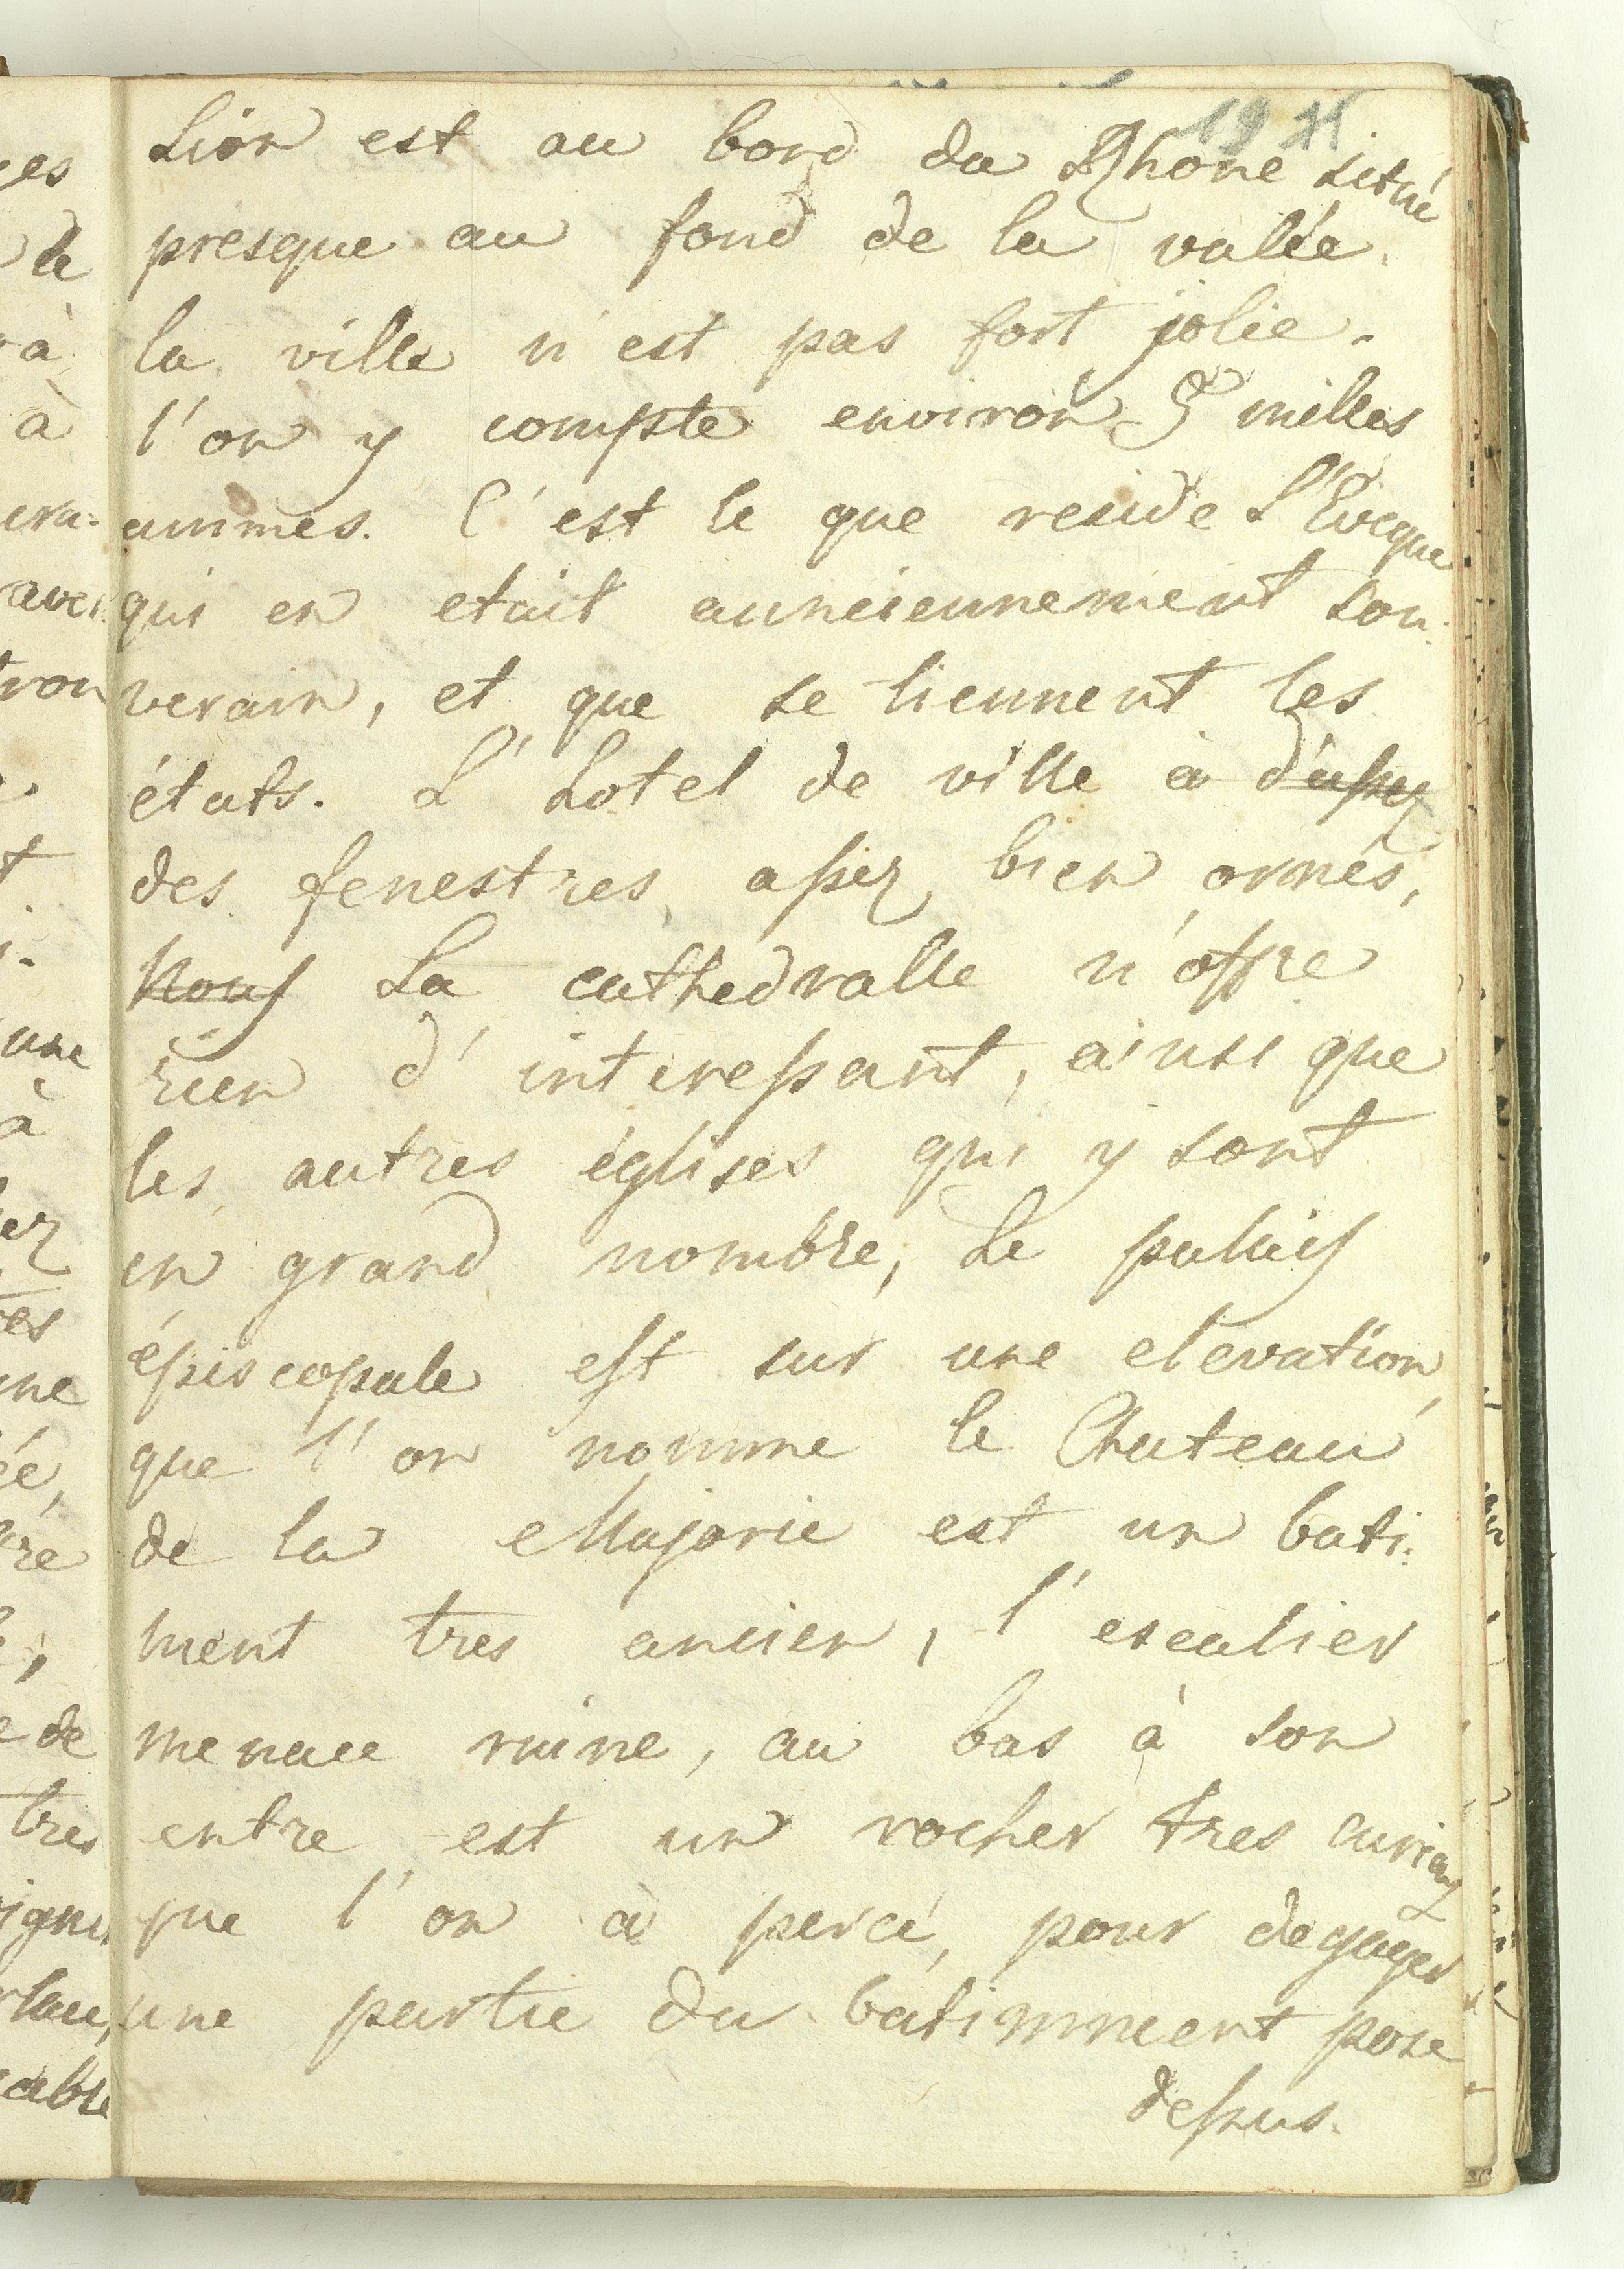 Sion est au bord du Rhone situé
presque au fond de la valée.
la ville n'est pas fort jolie.
l'on y compte environ 5 milles
ammes. C'est le que reside L'Eveque
qui en etait anneiennement sou-
verain, et que se tiennent les
états. L'hotel de ville à d'assez
des fenestres assez bien ornés,
Nous La cathedralle n'offre
rien d'interessant, ainsi que
les autres églises qui y sont
en grand nombre, Le palais
épiscopale est sur une elevation
que l'on nomme le Chateau
de la Majorie est un bati-
ment tres ancien, l'escalier
menace ruine, au bas à son
entre est un rocher tres curieux
que l'on à percé, pour degager
une partie du batimment pose
dessus.
ges
de
à
à
avec
t
une
à
es
de
tres
able